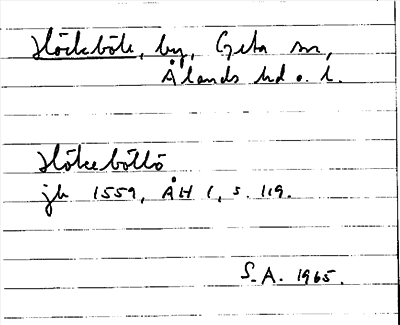 Höckböle, by, Geta sn,
Ålands hd o. l.
Hökeböllö
jb 1559, ÅH 1, s. 119.
S.A. 1965.